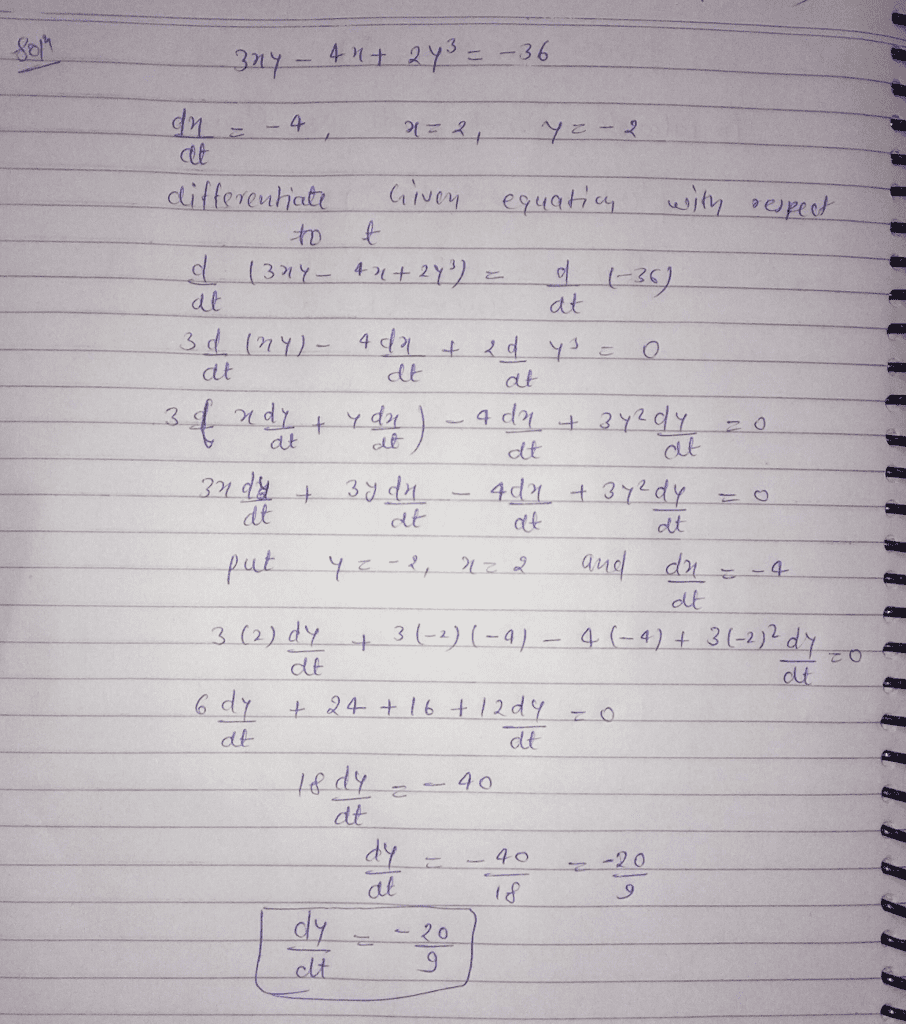 Soln 3xy - 4x + 2y³ = -36
dx/dt = -4, x = 2, y = -2
differentiate Given equation with respect
to t
d/dt (3xy - 4x + 2y³) = d/dt (-36)
3 d/dt (xy) - 4 dx/dt + 2 d/dt y³ = 0
3 ( x dy/dt + y dx/dt ) - 4 dx/dt + 3y² dy/dt = 0
3x dy/dt + 3y dx/dt - 4 dx/dt + 3y² dy/dt = 0
put y = -2, x = 2 and dx/dt = -4
3(2) dy/dt + 3(-2)(-4) - 4(-4) + 3(-2)² dy/dt = 0
6 dy/dt + 24 + 16 + 12 dy/dt = 0
18 dy/dt = -40
dy/dt = -40/18 = -20/9
dy/dt = -20/9